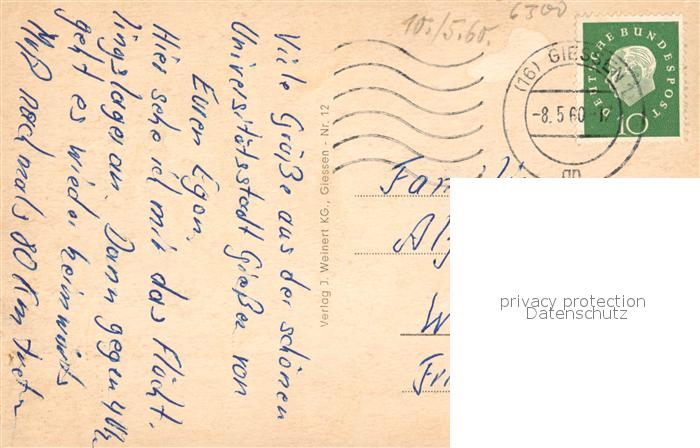 Viele Grüße aus der schönen
Universitätsstadt Gießen von
Euren Egon.
Hier sehe ich mir das Flücht-
lingslager an. Dann gegen 4 Uhr
geht es wieder heimwärts
Muß nochmals 80 Km treten
Verlag J. Weinert KG., Giessen - Nr. 12
10./5.60.
6300
(16) GIESSEN 1
-8.5.60.-
DEUTSCHE BUNDESPOST
10
Fam
privacy protection
Datenschutz